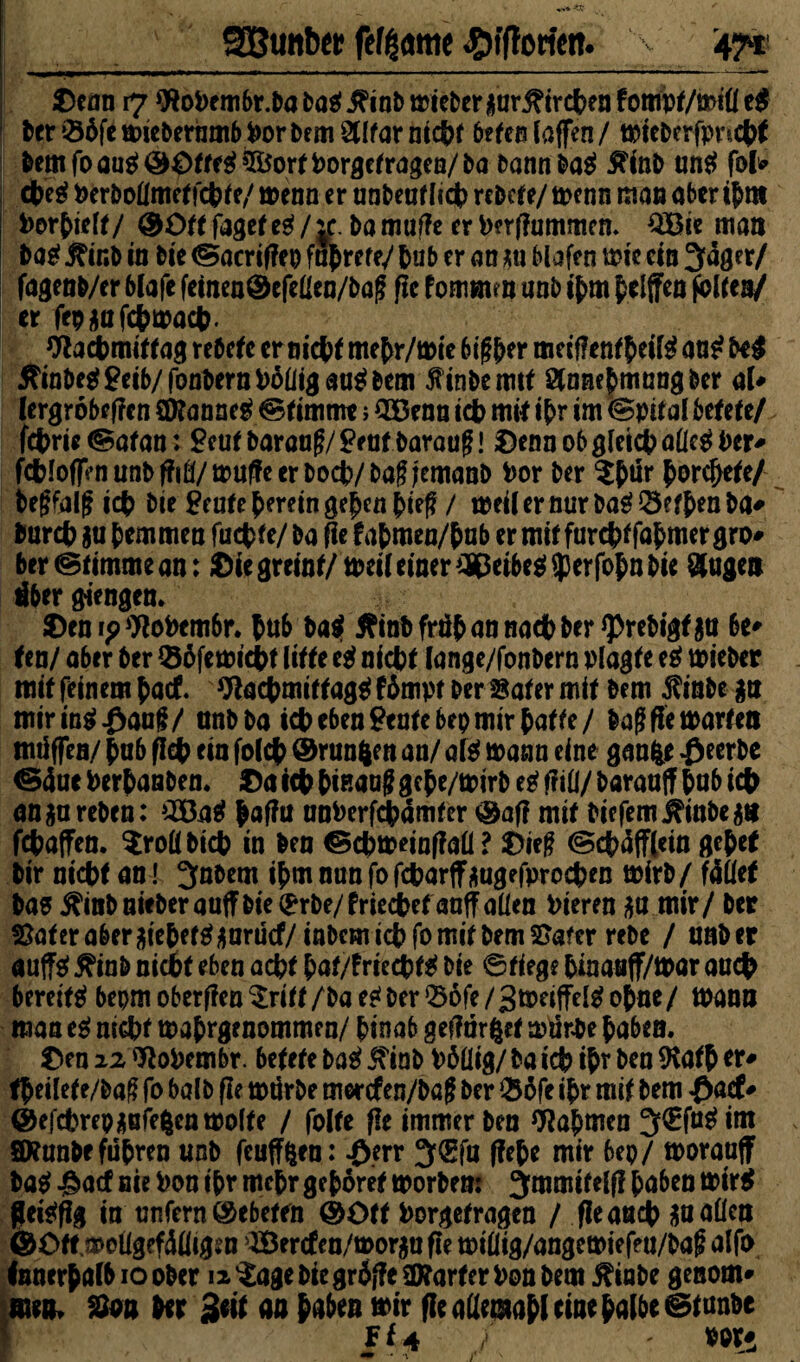 Wunder seltzame Historien. 471
Denn 17 Novembr. da das Kind wieder zur Kirchen kompt/will es
der Böse wiederumb vor dem Altar nicht beten lassen / wiederspricht
dem so aus GOttes Wort vorgetragen/ da dann das Kind uns sol-
ches verdollmetschte/ wenn er undeutlich redete/ wenn man aber ihm
vorhielt/ GOtt saget es /ꝛc. da muste er verstummen. Wie man
das Kind in die Sacristey führete/ hub er an zu blasen wie ein Jäger/
sagend/er blase seinen Gesellen/daß sie kommen und ihm helffen solten/
er sey zu schwach.
Nachmittag redete er nicht mehr/wie bißher meistentheils aus des
Kindes Leib/ sondern völlig aus dem Kinde mit Annehmung der al-
lergröbesten Mannes Stimme; Wenn ich mit ihr im Spital betete/
schrie Satan: Leut darauß/ Leut darauß! Denn ob gleich alles ver-
schlossen und still/ wuste er doch/ daß jemand vor der Thür horchete/
deßfalß ich die Leute herein gehen hieß / weil er nur das Bethen da-
durch zu hemmen suchte/ da sie kahmen/hub er mit furchtsahmer gro-
ber Stimme an: Die greint/ weil einer Weibes Persohn die Augen
über giengen.
Den 19 Novembr. hub das Kind früh an nach der Predigt zu be-
ten/ aber der Bösewicht litte es nicht lange/sondern plagte es wieder
mit seinem hack. Nachmittags kömpt der Vater mit dem Kinde zu
mir ins Hauß/ und da ich eben Leute bey mir hatte / daß sie warten
müssen/ hub sich ein solch Gruntzen an/ als wann eine gantze Heerde
Säue verhanden. Da ich hinauß gehe/wird es still/ darauff hub ich
an zu reden: Was hastu unverschämter Gast mit diesem Kinde zu
schaffen. Troll dich in den Schweinstall? Dieß Schäfflein gehet
dir nicht an! Indem ihm nun so scharff zugesprochen wird/ fället
das Kind nieder auff die Erde/ kriechet auff allen vieren zu mir/ der
Vater aber ziehets zurück/ indem ich so mit dem Vater rede / und er
auffs Kind nicht eben acht hat/kriechts die Stiege hinauff/war auch
bereits beym obersten Tritt /da es der Böse /Zweiffels ohne/ wann
man es nicht wahrgenommen/ hinab gestürtzet würde haben.
Den 22 Novembr. betete das Kind völlig/ da ich ihr den Rath er-
theilete/daß so bald sie würde mercken/daß der Böse ihr mit dem Hack-
Geschrey zusetzen wolte / solte sie immer den Nahmen JEsus im
Munde führen und seufftzen: Herr JEsu stehe mir bey/ worauff
das Hack nie von ihr mehr gehöret worden: Immitelst haben wirs
fleissig in unsern Gebeten GOtt vorgetragen / sie auch zu allen
GOtt wollgefälligen Wercken/worzu sie willig/angewiesen/daß also
innerhalb 10 oder 12 Tage die gröste Marter von dem Kinde genom-
men. Von der Zeit an haben wir sie allemahl eine halbe Stunde
Ff 4 vor-